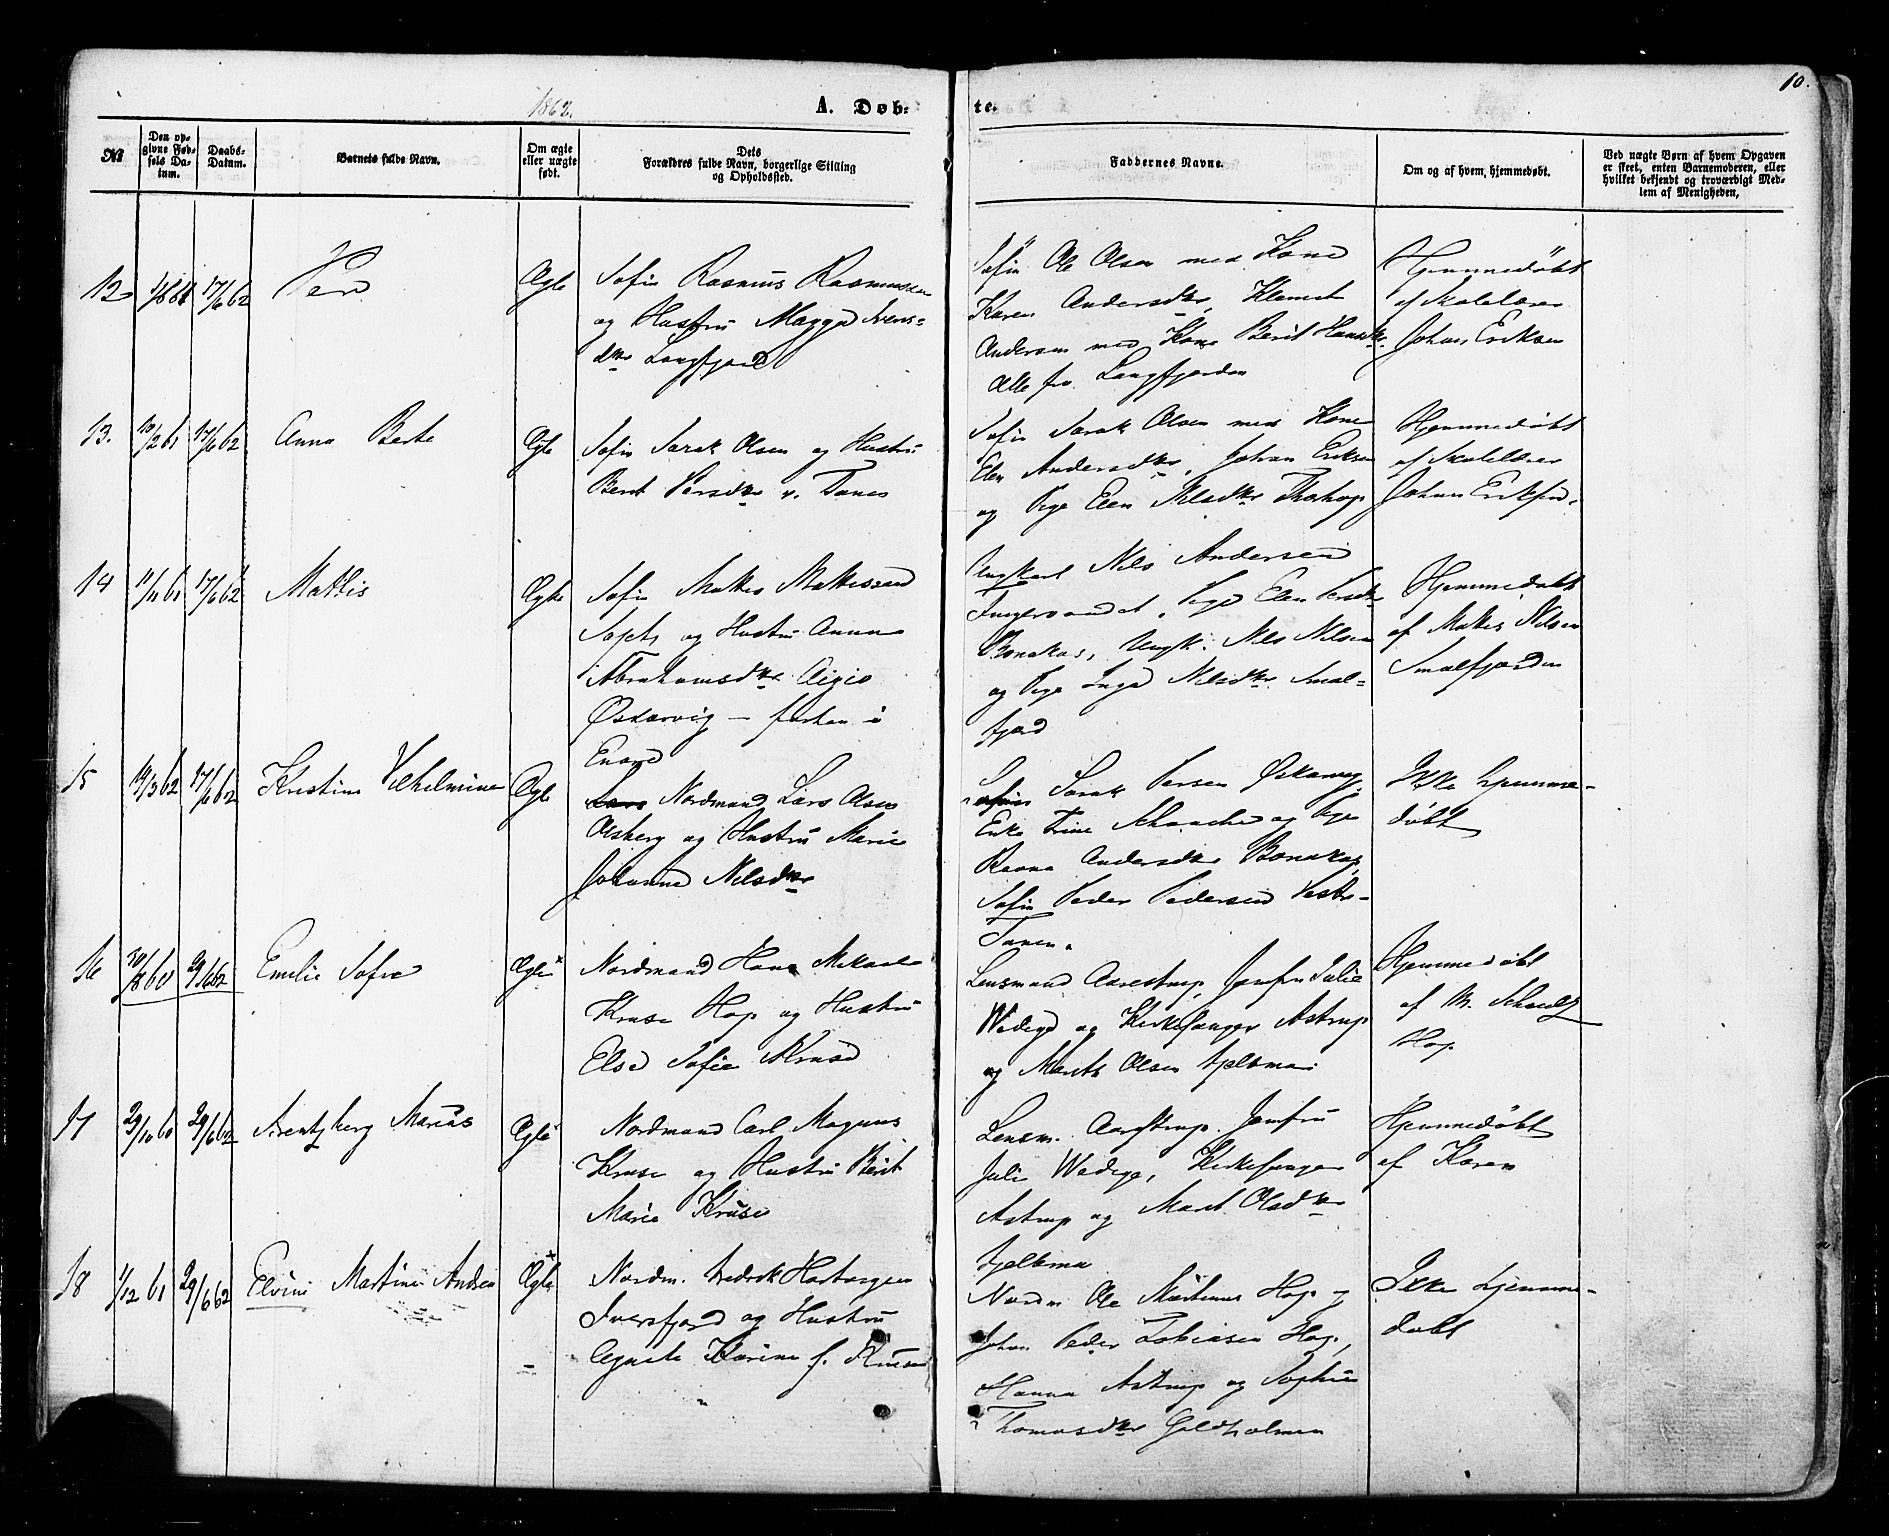 10.
1862.
A. Døb-
te.
№
Den op-
givne Fød-
sels Da-
tum.
Daabs-
Datum.
Barnets fulde Navn.
Om ægte
eller uægte
født.
Dets
Forældres fulde Navn, borgerlige Stilling
og Opholdssted.
Faddernes Navne.
Om og af hvem, hjemmedøbt.
Ved uægte Børn af hvem Opgaven
er skeet, enten Barnemoderen, eller
hvilket bekjendt og troværdigt Med-
lem af Menigheden.
12 17/6 62 Per Ægte
Søfin Rasmus Rasmussen
og Hustru Magga Ivers-
dtr Langfjord
Søfin Ole Olsen med Kone
Karen Andersdtr, Klemet
Andersen med Kone Berit Hansdtr
Alle fra Langfjorden
Hjemmedøbt
af Skolelærer
Johan Eriksen
13. 10/2 61 17/6 62 Anna Berte Ægte
Søfin Sarak Olsen og Hustru
Berit Persdtr v. Tanen
Søfin Sarak Olsen med Kone
Elen Andersdtr, Johan Eriksen
og Pige Elen Nilsdtr
Hjemmedøbt
af Skolelærer
Johan Eriksen.
14 11/11 61 17/6 62 Mattis Ægte
Søfin Mattis Mathissen
og Hustru Anna
Abrahamsdtr Aigio
Øskarvig — forhen i
Enare
Ungkarl Nils Andersen
Pige Elen Persdtr
Bonakas, Ungk. Nils Nilsen
og Pige Inga Nilsdtr Smal-
fjord
Hjemmedøbt
af Mattis Nilsen
Smalfjorden
15 14/3 62 17/6 62 Kristine Vilhelmine Ægte
Lars Nordmand Lars Olsen
Olsberg og Hustru Marie
Johanna Nilsdtr
Søfin Sarak Persen Øskarvig,
Enke Trine Schanche og Pige
Ravna Andersdtr Bonakas,
Søfin Peder Pedersen Vestr-
Tanen.
Ikke hjemme-
døbt
16 29/6 62 Emilie Sofie Ægte
Nordmand Hans Mikael
Kruse Hop og Hustru
Else Sofie Kruse
Lensmand Aarestrup, Jomfru Julie
Wedege og Kirkesanger Astrup
og Marit Olsen Fjeldma:
Hjemmedøbt
af M. Schanche
Hop
17 29/10 60 29/6 62 Arentzberg Marius Ægte
Nordmand Carl Magnus
Kruse og Hustru Berit
Marie Kruse
Lensm. Aarestrup. Jomfru
Julie Wedege, Kirkesanger
Astrup og Marit Olsdtr
Fjeldma
Hjemmedøbt
af Karen
18 1/12 61 29/6 62 Elvine Martine Andrea Ægte
Nordm. Fredrik Hartvigsen
Iversfjord og Hustru
Agnete Karine f. Kruse
Nordm Ole Martinus Hop og
Johan Peder Tobiasen Hop,
Hanna Astrup og Sophie
Thomasdtr Guldholmen
Ikke hjemme-
døbt